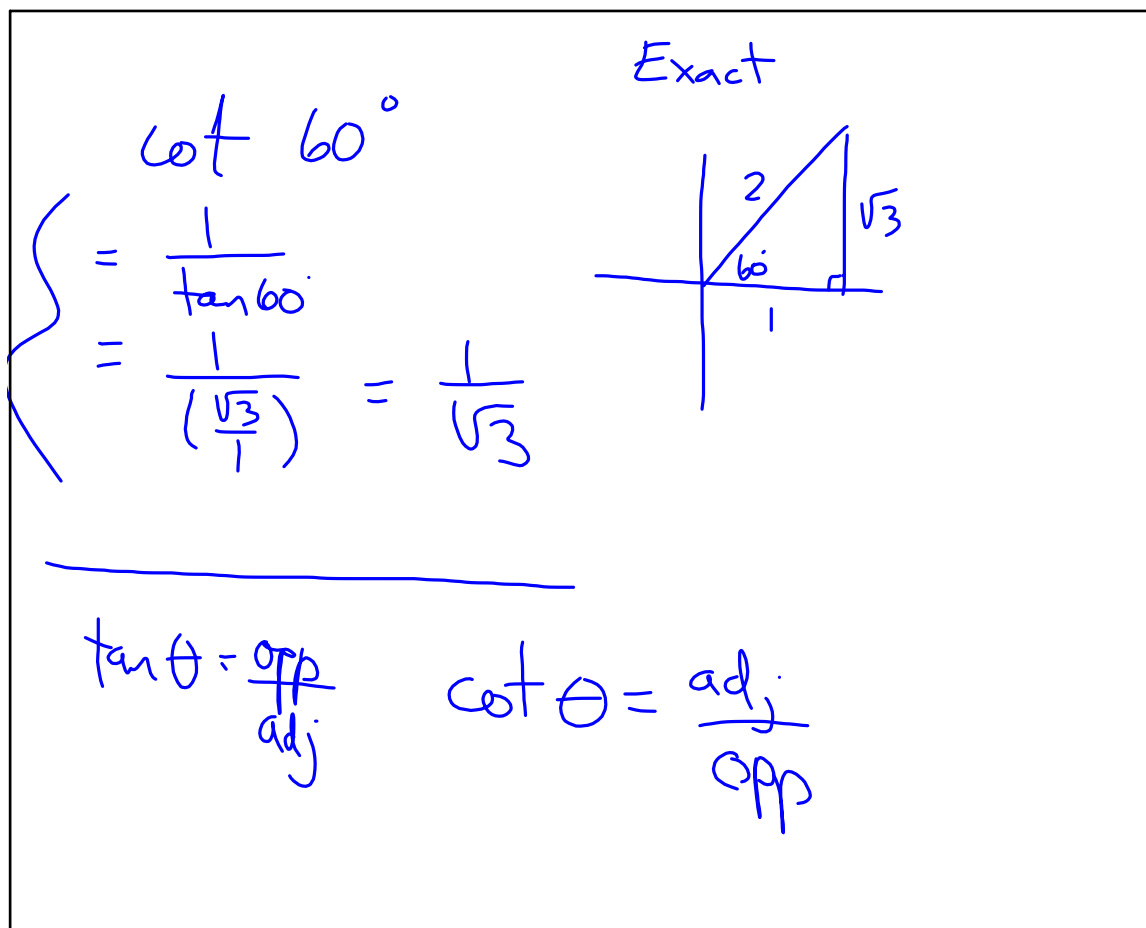 Exact
cot 60°
= 1/tan60°
= 1/(√3/1) = 1/√3
2
√3
60°
1
tan θ = opp/adj
cot θ = adj/opp